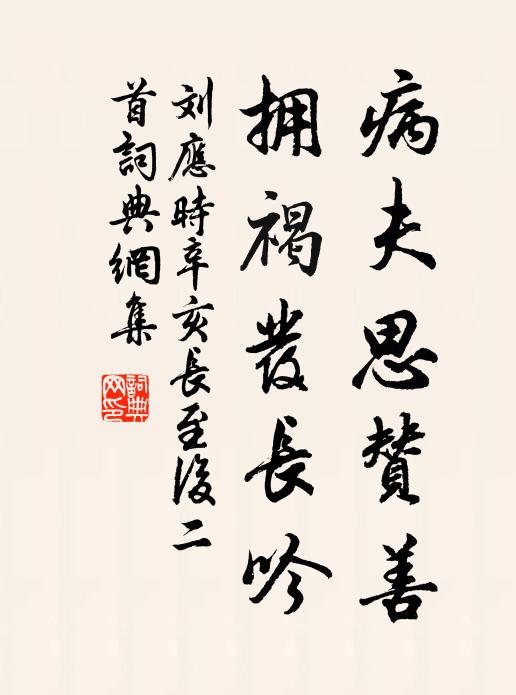 病夫思赞善
拥褐發長吟
刘應時辛亥長至後二
首詞典網集
詞典
网印